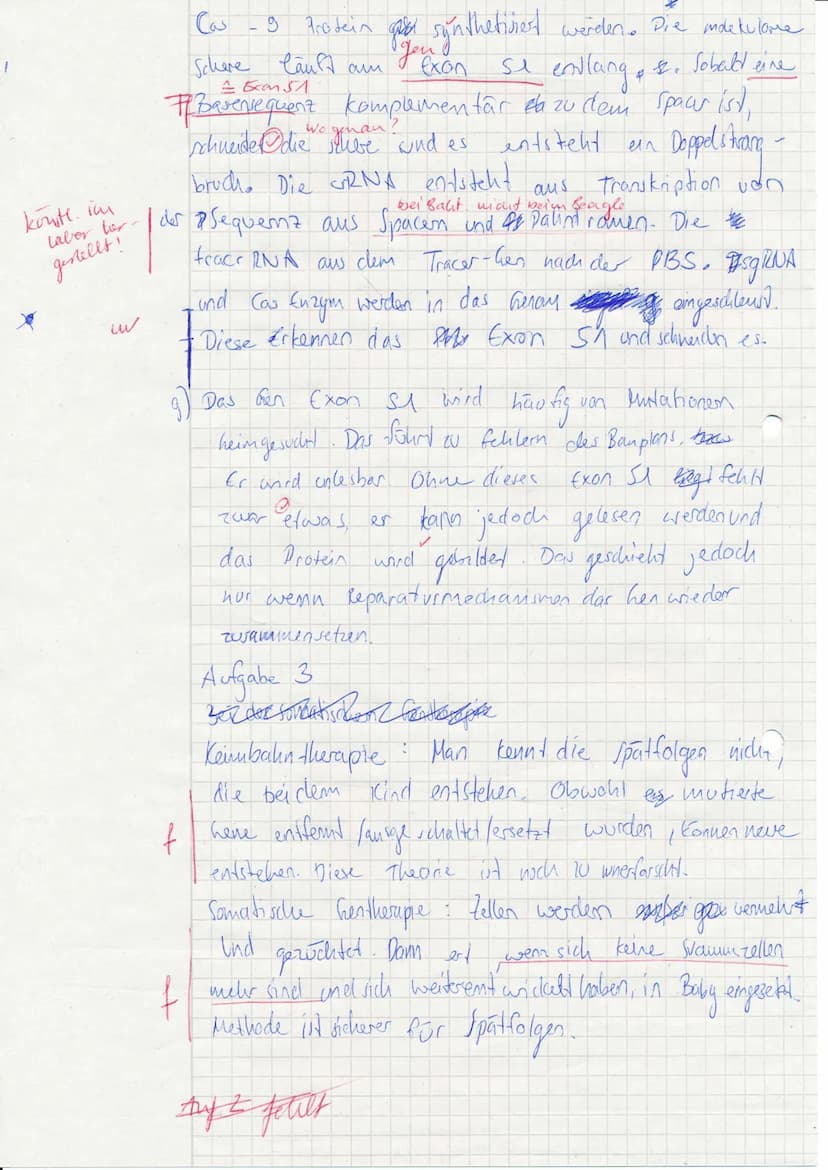 Cas - 9 Protein synthetisiert werden. Die molekulare
gen
Schere läuft am Exon 51 entlang. Sobald eine
≙ Exon 51
Basensequenz komplementär zu dem Spacer ist,
wo genau?
schneidet die Schere und es entsteht ein Doppelstrang-
bruch. Die crRNA entsteht aus Transkription von
bei Bakt. nicht beim Beagle
der Sequenz aus Spacern und Palindromen. Die
könstl. im
Labor her-
gestellt!
tracr RNA aus dem Tracer-Gen nach der PBS. sgRNA
und Cas Enzym werden in das Genom eingeschleust.
Diese Erkennen das Exon 51 und schneiden es.
g) Das Gen Exon 51 wird häufig von Mutationen
heimgesucht. Das führt zu Fehlern des Bauplans,
Er wird unlesbar. Ohne dieses Exon 51 fehlt
zwar etwas, er kann jedoch gelesen werden und
das Protein wird gebildet. Das geschieht jedoch
nur wenn Reparaturmechanismen das Gen wieder
zusammensetzen.
Aufgabe 3
Bei der somatischen Gentherapie
Keimbahntherapie: Man kennt die Spätfolgen nicht,
die bei dem Kind entstehen. Obwohl mutierte
f
Gene entfernt/ausgeschaltet/ersetzt wurden, können neue
entstehen. Diese Theorie ist noch zu unerforscht.
Somatische Gentherapie: Zellen werden vermehrt
und gezüchtet. Dann erst, wenn sich keine Stammzellen
f
mehr sind und sich weiterentwickelt haben, in Baby eingesetzt.
Methode ist sicherer für Spätfolgen.
Auf 2 fehlt